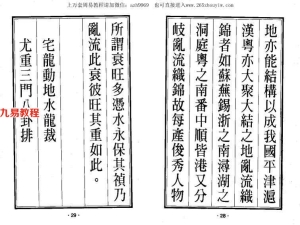 地亦能結構以成我國平津滬
漢粵亦大聚大結之地亂流織
錦者如蘇蕪錫浙之南潯湖之
洞庭粵之南番中順皆港又分
歧亂流織錦故每產俊秀人物
- 28 -
所謂衰旺多憑水永保其禎乃
亂流此衰彼旺其重如此。
宅龍動地水龍裁
尤重三門八卦排
- 29 -
九易教程